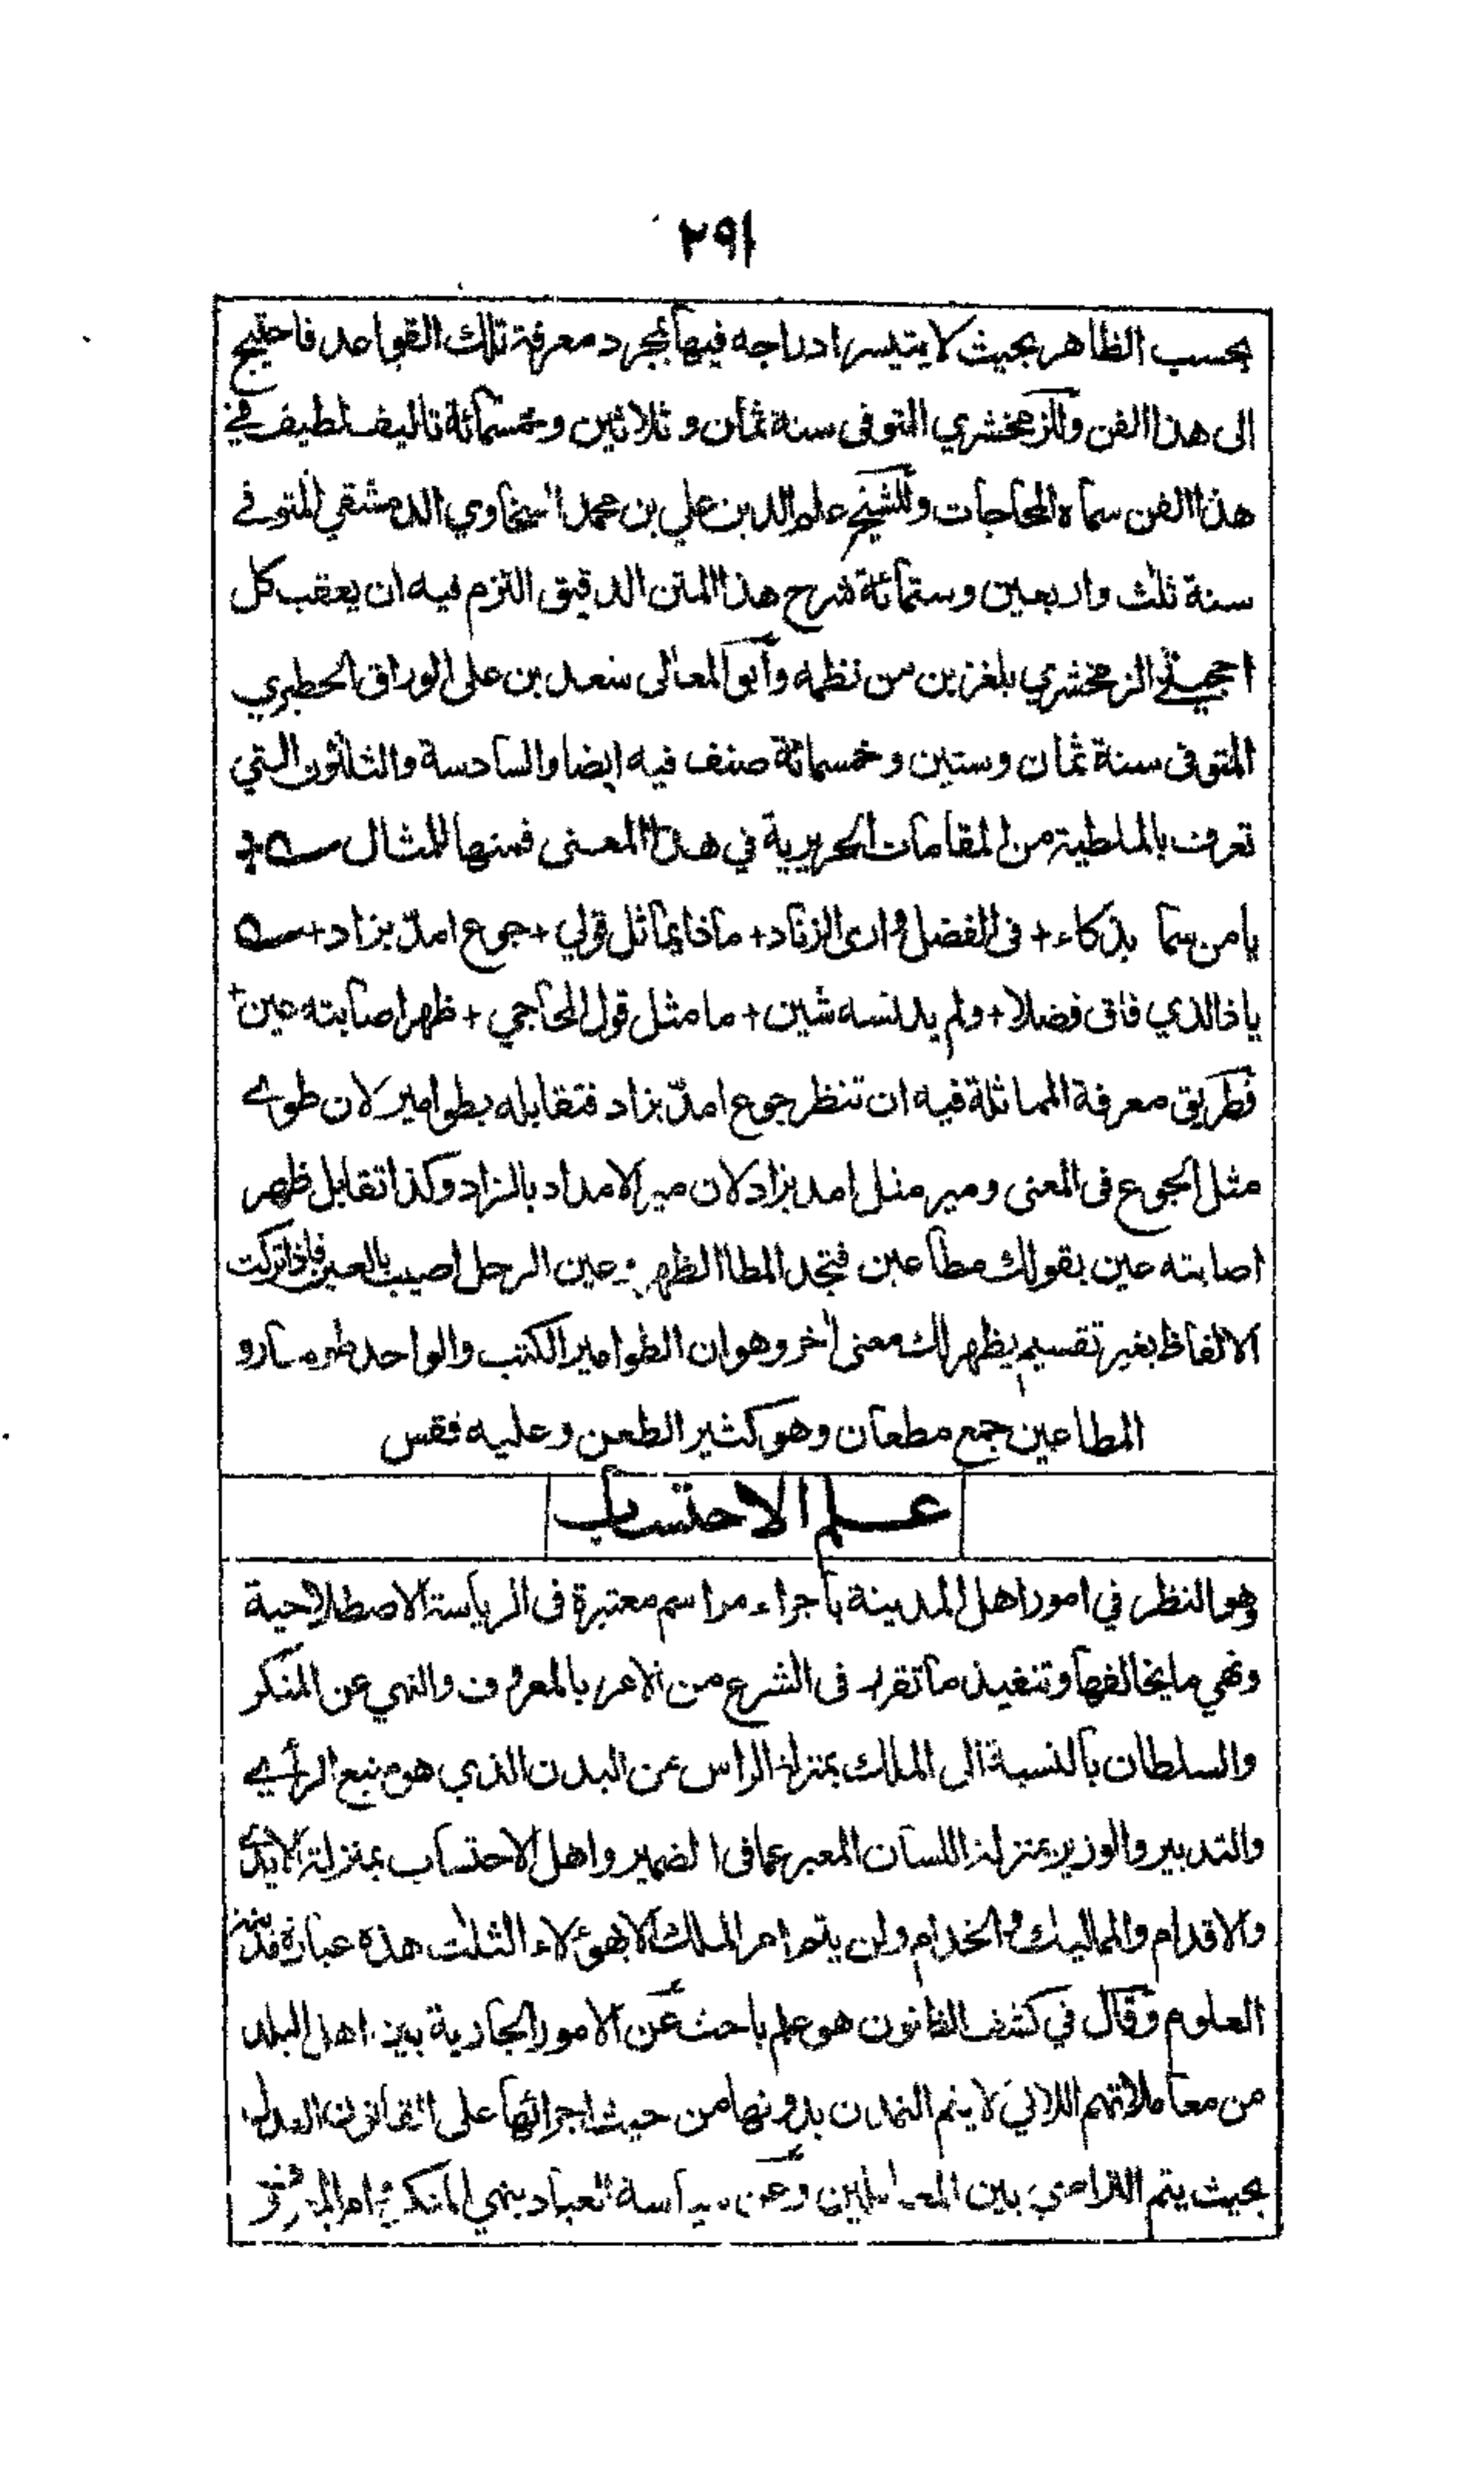 ٢٩١
بحسب الظاهر بحيث لا يتيسر ادراجه فيها بمجرد معرفة تلك القواعد فاحتيج
الى هذا الفن وللزمخشري المتوفى سنة ثمان وثلاثين وخمسمائة تاليف لطيف في
هذا الفن سماه المحاجات وللشيخ علم الدين علي بن محمد السخاوي الدمشقي المتوفى
سنة ثلث واربعين وستمائة شرح هذا المتن الدقيق التزم فيه ان يعقب كل
احجيتي الزمخشري بلغزين من نظمه وابو المعالى سعد بن على الوراق الحطيري
المتوفى سنة ثمان وستين وخمسمائة صنف فيه ايضا والسادسة والثلثون التي
تعرف بالملطية من المقامات الحريرية في هذا المعنى فمنها للمثال
يا من سما بذكاء + فى الفضل وارى الزناد + ماذا يماثل قولي + جوع امدّ بزاد +
ياذا الذي فاق فضلا + ولم يدنسه شين + ما مثل قول المحاجي + ظهر اصابته عين +
فطريق معرفة المماثلة فيه ان تنظر جوع امدّ بزاد فتقابله بطوامير لان طوى
مثل الجوع فى المعنى ومير مثل امد بزاد لان مير الامداد بالزاد وكذا تقابل ظهر
اصابته عين بقولك مطا عين فتجد المطا الظهر وعين الرجل اصيب بالعين فاذا تركت
الالفاظ بغير تقسيم يظهر لك معنى اخر وهو ان الطوامير الكتب والواحد طومار و
المطاعين جمع مطعان وهو كثير الطعن وعليه فقس
علم الاحتساب
وهو النظر في امور اهل المدينة باجراء مراسم معتبرة فى الرياسة الاصطلاحية
ونهي ما يخالفها وتنفيذ ما تقرر فى الشرع من الامر بالمعروف والنهي عن المنكر
والسلطان بالنسبة الى الملك بمنزلة الراس من البدن الذي هو منبع الرأي
والتدبير والوزير بمنزلة اللسان المعبر عما فى الضمير واهل الاحتساب بمنزلة الايدي
والاقدام والمماليك والخدام ولن يتم امر الملك الا بهؤلاء الثلث هذه عبارة مدينة
العلوم وقال في كشف الظنون هو علم باحث عن الامور الجارية بين اهل البلد
من معاملاتهم اللاتي لا يتم التمدن بدونها من حيث اجرائها على القانون العدل
بحيث يتم التراضي بين المعاملين وعن سياسة العباد بنهي المنكر وامر المعروف